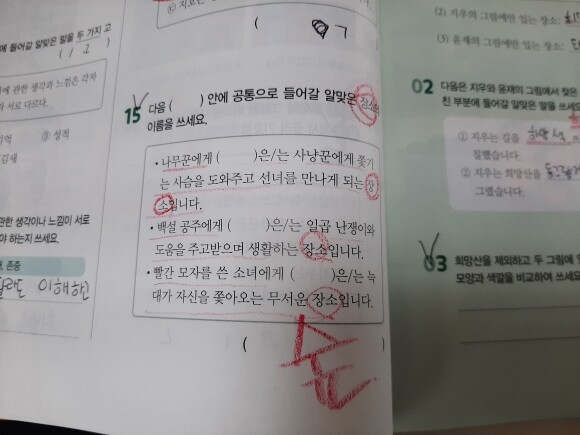 ( ㄱ
에 들어갈 알맞은 말을 두 가지 고
( 1, 2 )
에 관한 생각과 느낌은 각자
서로 다르다.
③ 성적
15 다음 ( ) 안에 공통으로 들어갈 알맞은 장소의
이름을 쓰세요.
• 나무꾼에게 ( )은/는 사냥꾼에게 쫓기
는 사슴을 도와주고 선녀를 만나게 되는 장
소입니다.
• 백설 공주에게 ( )은/는 일곱 난쟁이와
도움을 주고받으며 생활하는 장소입니다.
• 빨간 모자를 쓴 소녀에게 ( )은/는 늑
대가 자신을 쫓아오는 무서운 장소입니다.
( 숲 )
관한 생각이나 느낌이 서로
야 하는지 쓰세요.
존중
이해
(2) 지우의 그림에만 있는 장소:
(3) 윤재의 그림에만 있는 장소:
02 다음은 지우와 윤재의 그림에서 찾은
친 부분에 들어갈 알맞은 말을 쓰
① 지우는 길을
칠했습니다.
② 지우는 희망산을
그렸습니다.
03 희망산을 제외하고 두 그림에
모양과 색깔을 비교하여 쓰세